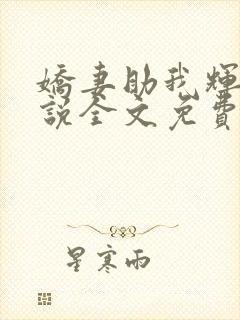 嬌妻助我輝
說全文免費
星寒雨